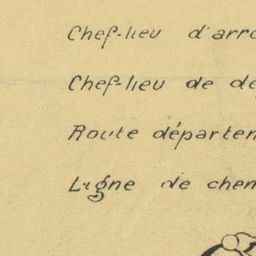 Chef-lieu d'arro
Chef-lieu de dé
Route départem
Ligne de chem